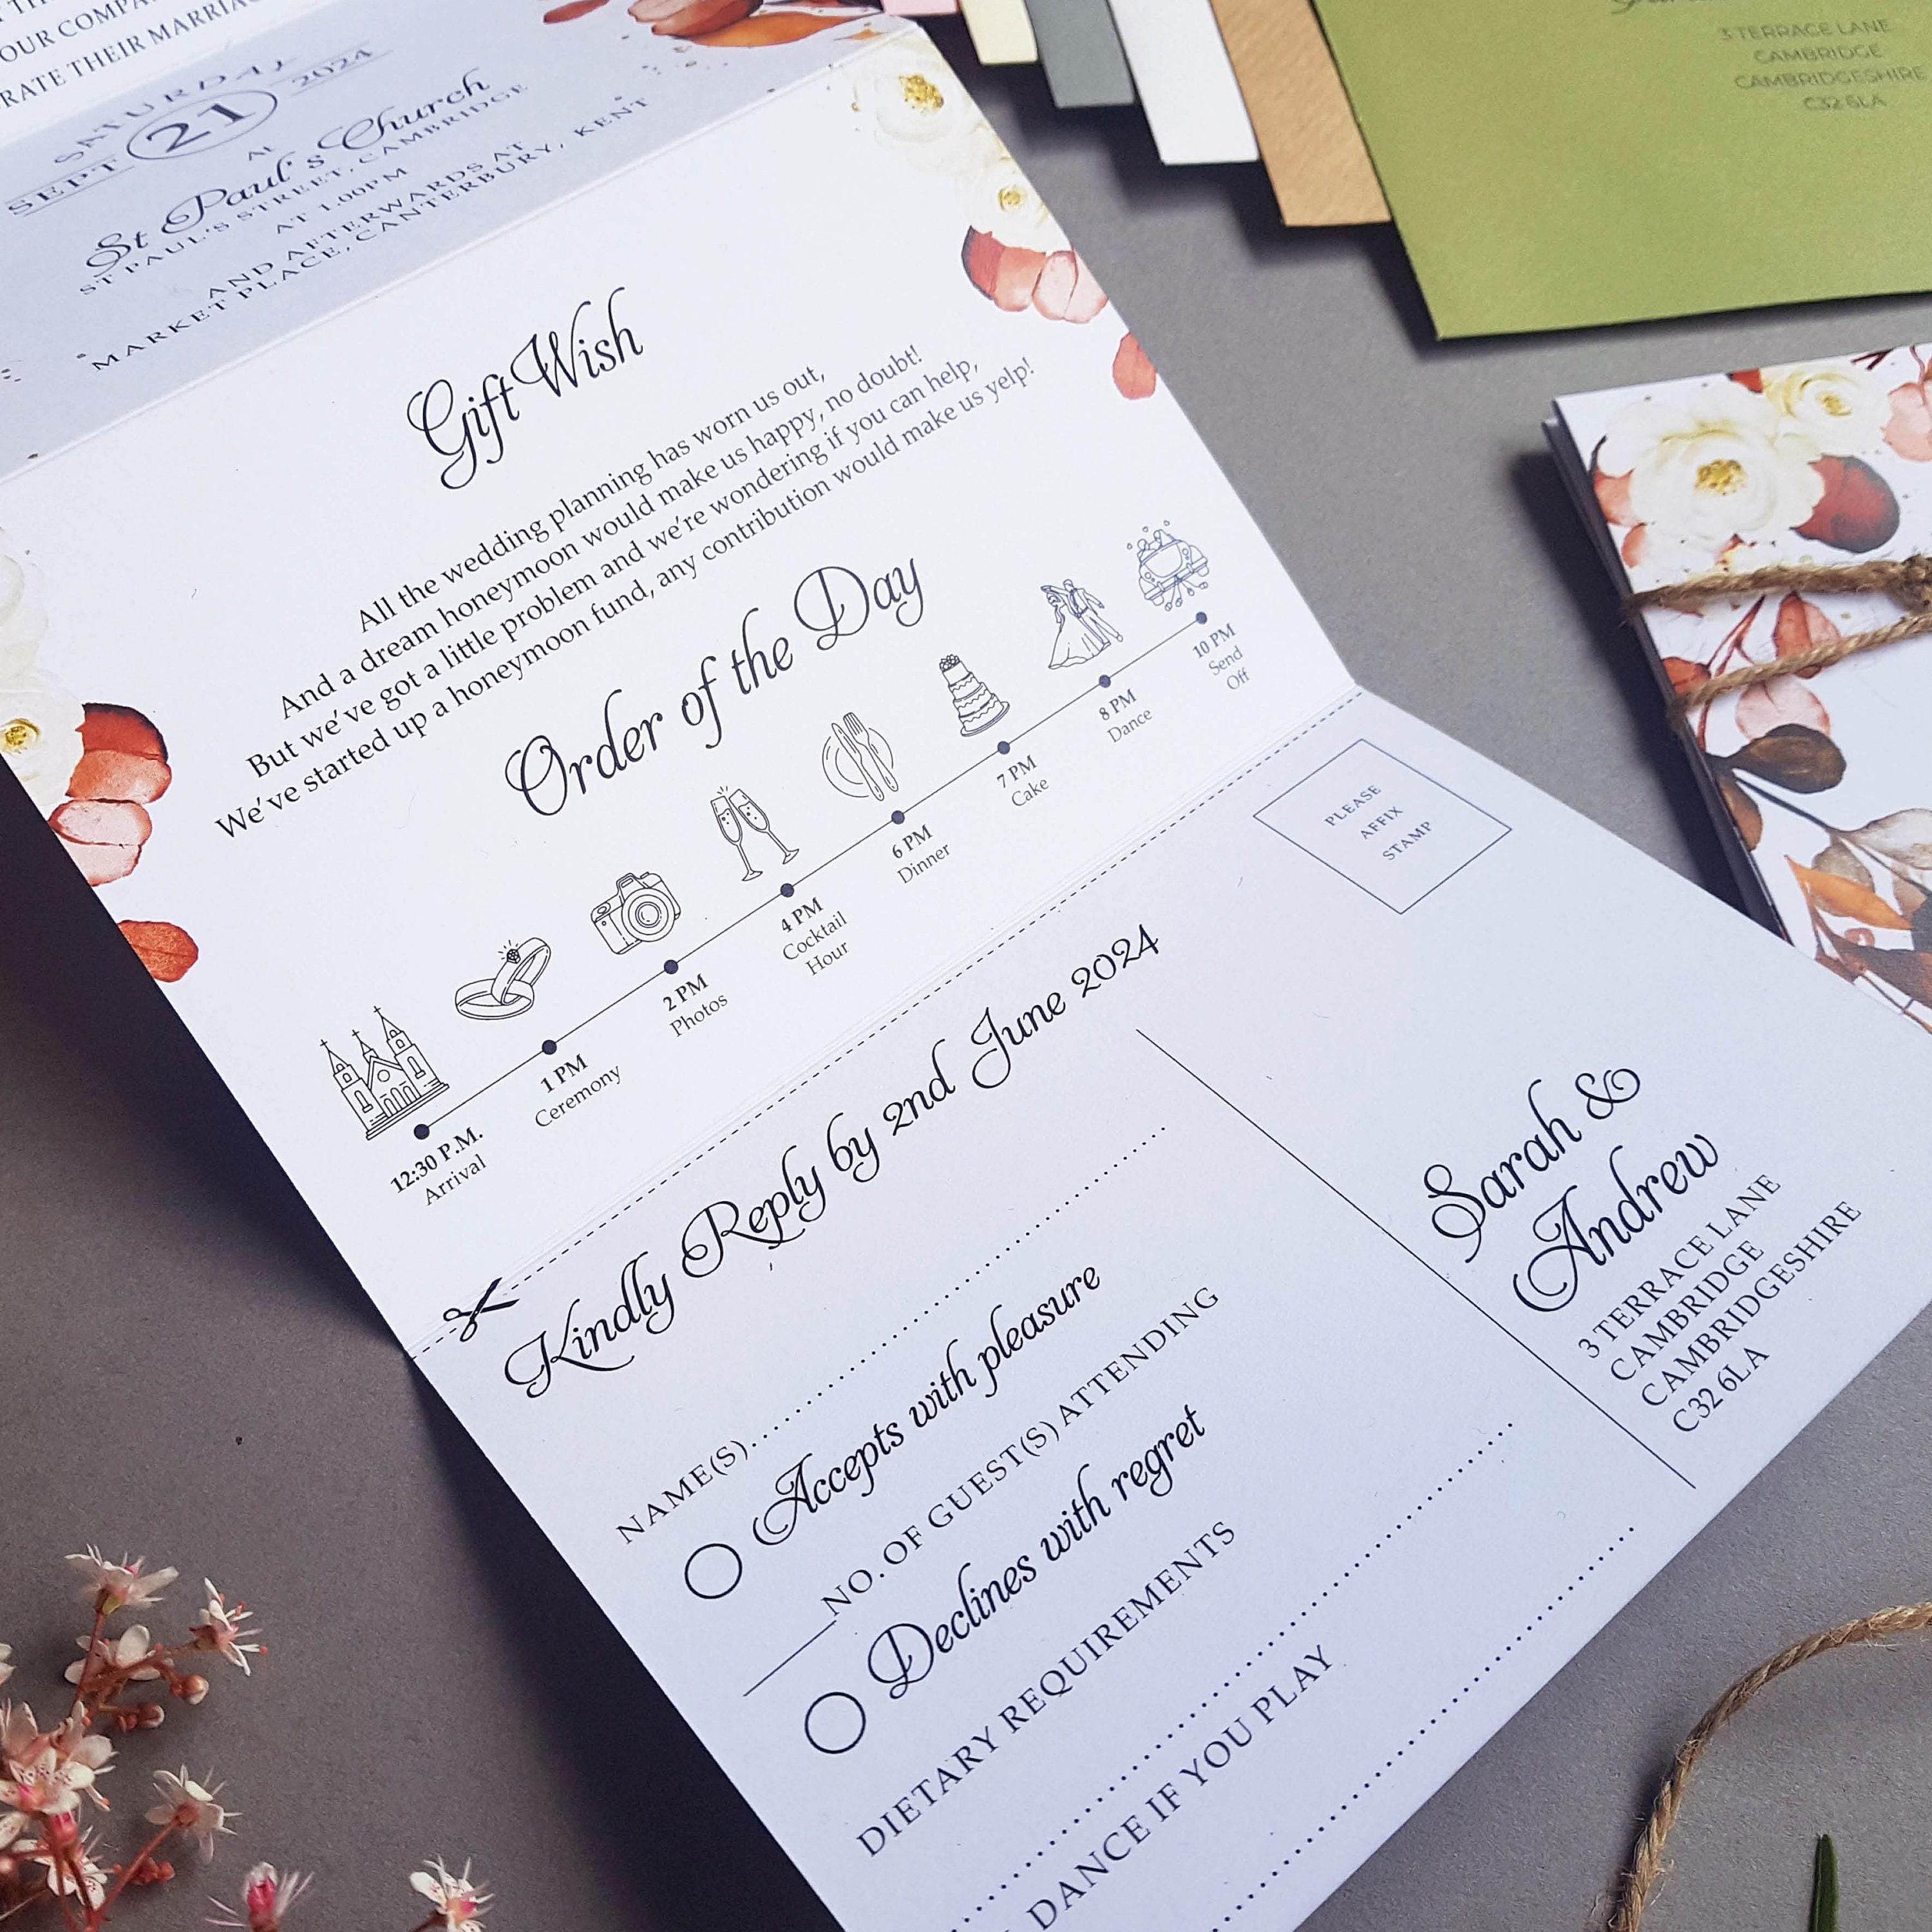 OUR COMPA
RATE THEIR MARRIAG
SATURDAY
SEPT 21 2024
AT
St Paul's Church
ST PAUL'S STREET, CAMBRIDGE
AT 1.00PM
AND AFTERWARDS AT
MARKET PLACE, CANTERBURY, KENT
Gift Wish
All the wedding planning has worn us out,
And a dream honeymoon would make us happy, no doubt!
But we've got a little problem and we're wondering if you can help,
We've started up a honeymoon fund, any contribution would make us yelp!
Order of the Day
12:30 P.M.
Arrival
1 PM
Ceremony
2 PM
Photos
4 PM
Cocktail
Hour
6 PM
Dinner
7 PM
Cake
8 PM
Dance
10 PM
Send
Off
Kindly Reply by 2nd June 2024
NAME(S)
Accepts with pleasure
NO. OF GUEST(S) ATTENDING
Declines with regret
DIETARY REQUIREMENTS
DANCE IF YOU PLAY
PLEASE
AFFIX
STAMP
Sarah &
Andrew
3 TERRACE LANE
CAMBRIDGE
CAMBRIDGESHIRE
C32 6LA
3 TERRACE LANE
CAMBRIDGE
CAMBRIDGESHIRE
C32 6LA